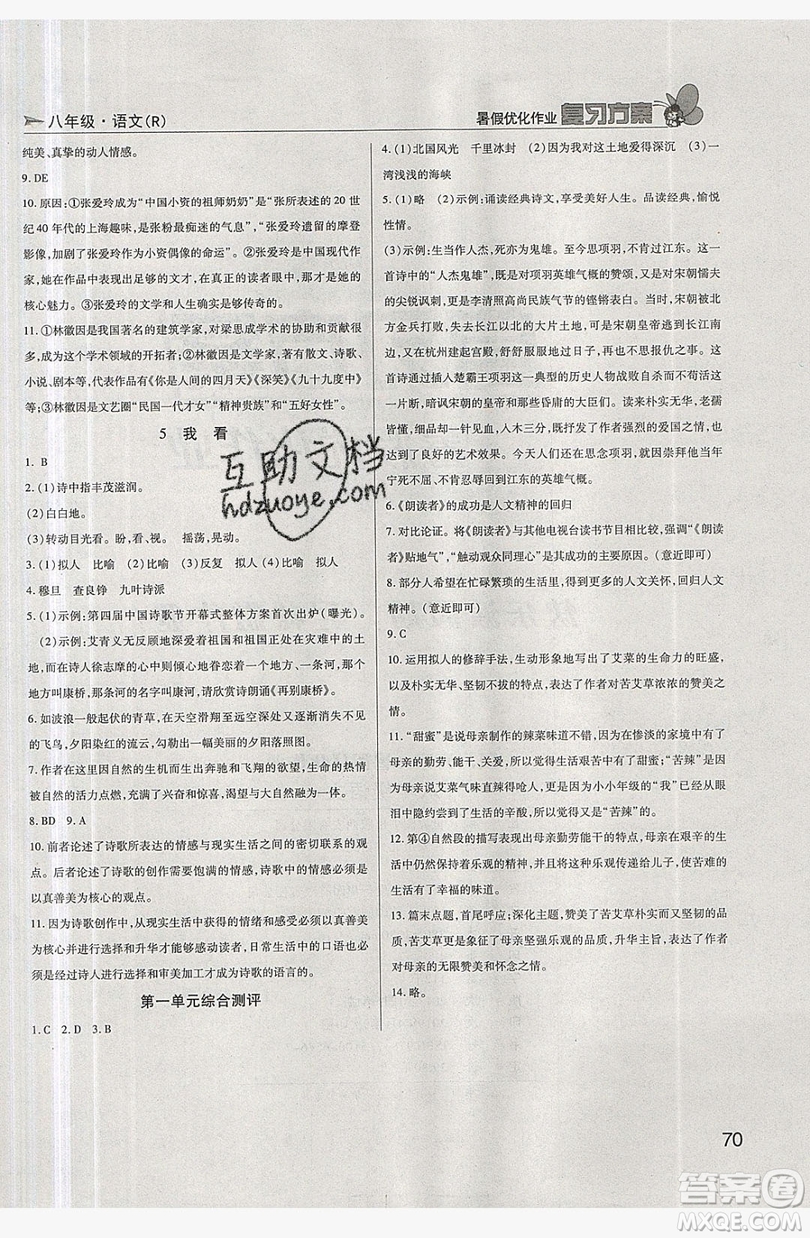 八年级·语文(R)
暑假优化作业 复习方案
纯美、真挚的动人情感。
9. DE
10. 原因：①张爱玲成为“中国小资的祖师奶奶”是“张所表述的 20 世
纪 40 年代的上海趣味，张粉最痴迷的气息”，“张爱玲遗留的摩登
影像，加剧了张爱玲作为小资偶像的命运”。②张爱玲是中国现代作
家，她在作品中表现出足够的文才，在真正的读者眼里，那才是她的
核心魅力。③张爱玲的文学和人生确实是足够传奇的。
11. ①林徽因是我国著名的建筑学家，对梁思成学术的协助和贡献很
多，是我国这个学术领域的开拓者；②林徽因是文学家，散文、诗歌、
小说、剧本等作品，代表作有《你是人间的四月天》《深笑》《九十九度中》
等；③林徽因是文艺圈“民国一代才女”“精神贵族”和“五好女性”。
5 我 看
1. B
2. (1)诗中指丰茂滋润。
(2)白白地。
(3)转动目光看。盼，看、视。 摇荡，晃动。
3. (1)拟人 (2)比喻 (3)反复 拟人 (4)比喻 拟人
4. 穆旦 查良铮 九叶诗派
5. (1)示例：第四届中国诗歌节开幕式整体方案首次出炉(曝光)。
(2)示例：艾青义无反顾地深深爱着祖国和祖国处在灾难中的土
地，而大诗人徐志摩的成长，离不开异国他乡的一个地方、一条河，那
地方叫康桥，那条河也叫康河，请欣赏诗朗诵《再别康桥》。
6. 如波浪一般起伏的青草，在天空滑翔至深远又逐渐消失不见
的飞鸟，夕阳染红的流云，勾勒出一幅绚丽的夕阳落照图。
7. 作者在这里因自然的生机而生出奔驰和飞翔的欲望，生命因自
然的活力而燃烧，抒情主体充满了兴奋和喜悦之感。
8. BD 9. A
10. 前者论述了诗歌所表达的情感与现实生活之间的密切联系的观
点。后者论述了诗歌的创作需要饱满的情感，诗歌中的情感必须以
真善美为核心的观点。
11. 因为诗歌创作中，从现实生活中获得的情绪和感必须以真善美
为核心并进行选择和升华才能成功感动读者，日常生活中的口语也必须
经过诗人进行选择和审美加工才成为诗歌的语言的。
第一单元综合测评
1. C 2. D 3. B
4. (1)北国风光 千里冰封 (2)因为我对这土地爱得深沉 (3)一
湾浅浅的海峡
5. (1)略 (2)示例：诵读经典诗文，享受美好人生。品读经典，愉悦
性情。
(3)示例：生当作人杰，死亦为鬼雄。至今思项羽，不肯过江东。这一
首诗中的“人杰鬼雄”，既有对项羽英雄气概的赞颂，又有对宋朝懦夫
的尖锐讽刺，更有李清照高尚民族气节的铿锵表白。当时，宋朝被北
方金兵打败，一路向南，丢弃北方的大片土地；可是，宋朝皇帝不思北
上，又在杭州建起宫殿，舒舒服服地当起了偏安一隅的小皇帝来。这
首诗通过楚霸王项羽这一典型的历史人物战败自杀、不肯苟且偷生
这一片断，暗讽宋朝的皇帝和那些昏庸的大臣。语言朴实无华，老幼
皆懂。然而却字字如钉，一针见血，入木三分，加之炽热的爱国之情，
达到了良好的艺术效果。这首诗至今思来令人难以忘怀，眼前常现
宁死不屈、不肯忍辱回到江东的英雄气概。
6. 《朗读者》的成功是人文精神的回归
7. 对比论证。将《朗读者》与其他电视台读书节目相比较，强调“《朗
读者》贴地气”，“触动观众同理心”是其成功的主要原因。(意近即可)
8. 部分人希望在忙碌繁琐的生活里，得到更多的人文关怀，回归人文
精神。(意近即可)
9. C
10. 运用拟人的修辞手法，生动形象地写出了艾菜的生命力的旺盛，
以及朴实无华、坚韧不拔的特点，表达了作者对苦艾草浓浓的赞美之
情。
11. “甜蜜”是说母亲制作的辣菜味道不错，因在惨淡的家境中有了
母亲的勤劳、能干，生活也有了甜蜜；“苦辣”
泪中隐约尝到了生活的辛酸，感受到了生活的“苦辣”。
12. 第④自然段的描写表现出了母亲勤劳能干的特点，母亲在艰难中
仍然保持着乐观的精神，并将这种乐观传递给儿子，使苦难的生活也
有了幸福的味道。
13. 篇末点题，首尾呼应；深化主题，赞美了苦艾草朴实而又坚韧的品
质，苦艾草更是象征了母亲坚韧的品质，升华主旨，表达了作者对母
亲的无限赞美和怀念之情。
14. 略。
互助文档
hdzuoye.com
70
答案圈
MXQE.COM